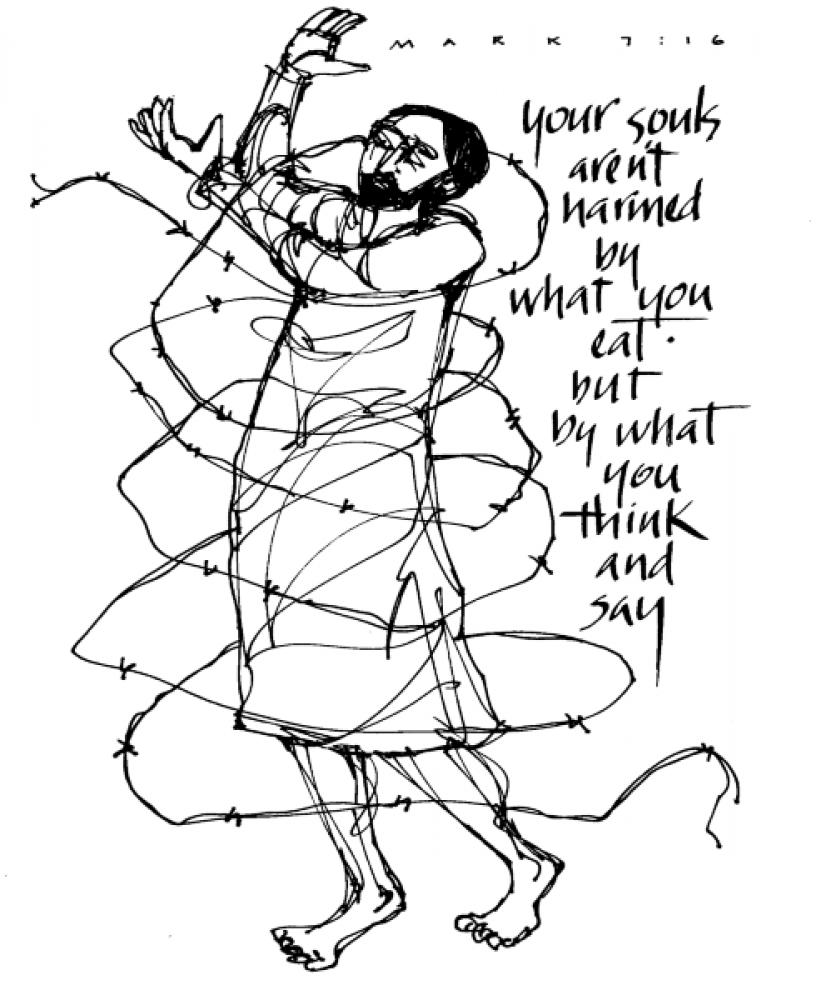 MARK 7:16
your souls
aren't
harmed
by
what you
eat.
but
by what
you
think
and
say